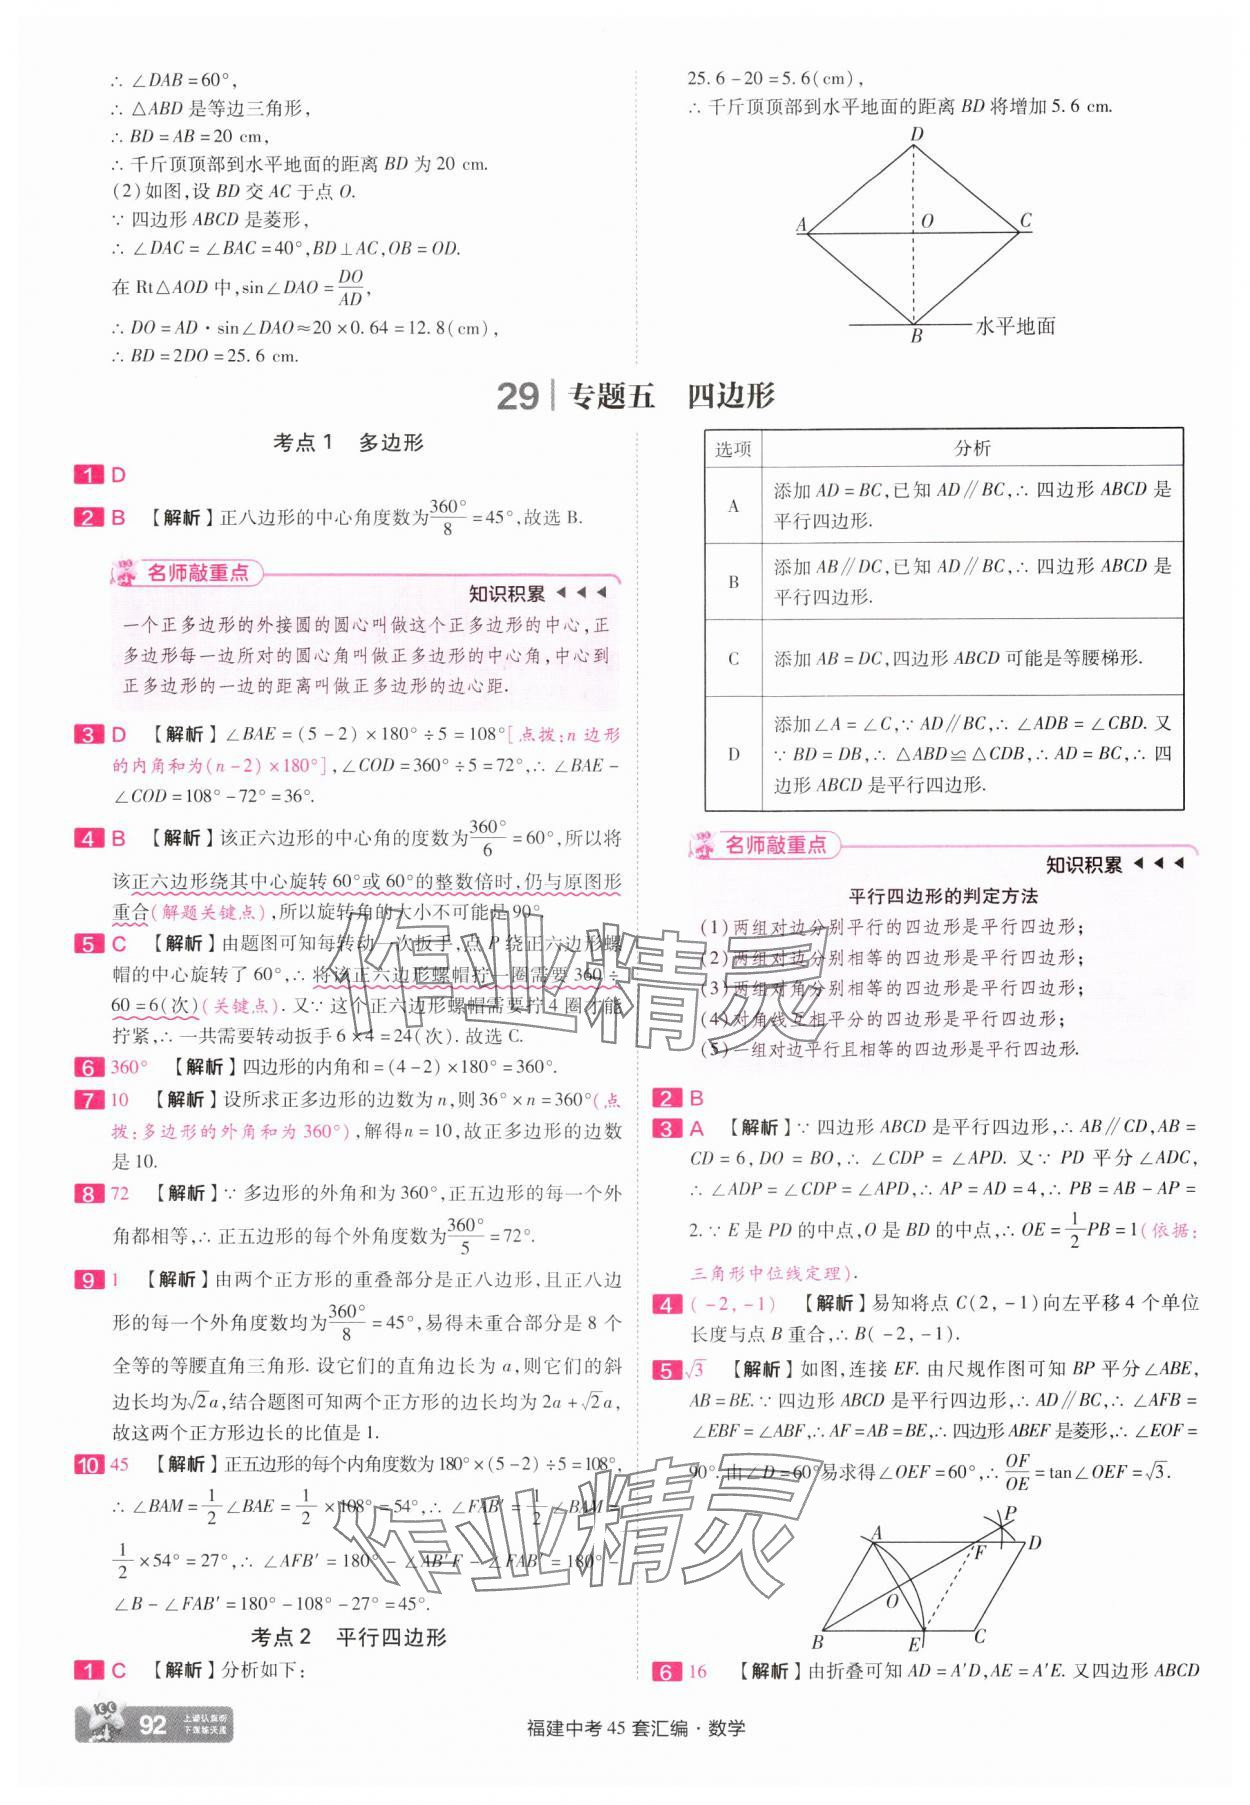 ∴ ∠DAB=60°,
∴ △ABD 是等边三角形,
∴ BD=AB=20 cm,
∴ 千斤顶顶部到水平地面的距离 BD 为 20 cm.
(2)如图,设 BD 交 AC 于点 O.
∵ 四边形 ABCD 是菱形,
∴ ∠DAC=∠BAC=40°,BD⊥AC,OB=OD.
在 Rt△AOD 中,sin∠DAO=DO/AD,
∴ DO=AD·sin∠DAO≈20×0.64=12.8(cm),
∴ BD=2DO=25.6 cm.
25.6-20=5.6(cm),
∴ 千斤顶顶部到水平地面的距离 BD 将增加 5.6 cm.
D
A
O
C
B
水平地面
29 专题五 四边形
考点 1 多边形
1 D
2 B 【解析】正八边形的中心角度数为360°/8=45°,故选 B.
名师敲重点
知识积累
一个正多边形的外接圆的圆心叫做这个正多边形的中心,正
多边形每一边所对的圆心角叫做正多边形的中心角,中心到
正多边形的一边的距离叫做正多边形的边心距.
3 D 【解析】∠BAE=(5-2)×180°÷5=108°[点拨:n 边形
的内角和为(n-2)×180°],∠COD=360°÷5=72°,∴ ∠BAE-
∠COD=108°-72°=36°.
4 B 【解析】该正六边形的中心角的度数为360°/6=60°,所以将
该正六边形绕其中心旋转 60°或 60°的整数倍时,仍与原图形
重合(解题关键点),所以旋转角的大小不可能是 90°.
5 C 【解析】由题图可知每转动一次扳手,点 P 绕正六边形螺
帽的中心旋转了 60°,∴ 将该正六边形螺帽拧一圈需要 360÷
60=6(次)(关键点). 又∵ 这个正六边形螺帽需要拧 4 圈才能
拧紧,∴ 一共需要转动扳手 6×4=24(次). 故选 C.
6 360° 【解析】四边形的内角和=(4-2)×180°=360°.
7 10 【解析】设所求正多边形的边数为 n,则 36°×n=360°(点
拨:多边形的外角和为 360°),解得 n=10,故正多边形的边数
是 10.
8 72 【解析】∵ 多边形的外角和为 360°,正五边形的每一个外
角都相等,∴ 正五边形的每个外角度数为360°/5=72°.
9 1 【解析】由两个正方形的重叠部分是正八边形,且正八边
形的每一个外角度数均为360°/8=45°,易得未重合部分是 8 个
全等的等腰直角三角形. 设它们的直角边长为 a,则它们的斜
边长均为√2a,结合题图可知两个正方形的边长均为 2a+√2a,
故这两个正方形边长的比值是 1.
10 45 【解析】正五边形的每个内角度数为 180°×(5-2)÷5=108°,
∴ ∠BAM=1/2∠BAE=1/2×108°=54°,∴ ∠FAB′=1/2∠BAM=
1/2×54°=27°,∴ ∠AFB′=180°-∠AB′F-∠FAB′=180°-
∠B-∠FAB′=180°-108°-27°=45°.
考点 2 平行四边形
1 C 【解析】分析如下:
选项 分析
A 添加 AD=BC,已知 AD∥BC,∴ 四边形 ABCD 是
平行四边形.
B 添加 AB∥DC,已知 AD∥BC,∴ 四边形 ABCD 是
平行四边形.
C 添加 AB=DC,四边形 ABCD 可能是等腰梯形.
D 添加∠A=∠C,∵ AD∥BC,∴ ∠ADB=∠CBD. 又
∵ BD=DB,∴ △ABD≌△CDB,∴ AD=BC,∴ 四
边形 ABCD 是平行四边形.
名师敲重点
知识积累
平行四边形的判定方法
(1)两组对边分别平行的四边形是平行四边形;
(2)两组对边分别相等的四边形是平行四边形;
(3)两组对角分别相等的四边形是平行四边形;
(4)对角线互相平分的四边形是平行四边形;
(5)一组对边平行且相等的四边形是平行四边形.
2 B
3 A 【解析】∵ 四边形 ABCD 是平行四边形,∴ AB∥CD,AB=
CD=6,DO=BO,∴ ∠CDP=∠APD. 又∵ PD 平分∠ADC,
∴ ∠ADP=∠CDP=∠APD,∴ AP=AD=4,∴ PB=AB-AP=
2. ∵ E 是 PD 的中点,O 是 BD 的中点,∴ OE=1/2PB=1(依据:
三角形中位线定理).
4 (-2,-1) 【解析】易知将点 C(2,-1)向左平移 4 个单位
长度与点 B 重合,∴ B(-2,-1).
5 √3 【解析】如图,连接 EF. 由尺规作图可知 BP 平分∠ABE,
AB=BE. ∵ 四边形 ABCD 是平行四边形,∴ AD∥BC,∴ ∠AFB=
∠EBF=∠ABF,∴ AF=AB=BE,∴ 四边形 ABEF 是菱形,∴ ∠EOF=
90°. 由∠D=60°易求得∠OEF=60°,∴ OF/OE=tan∠OEF=√3.
P
A
F
D
O
B
E
C
6 16 【解析】由折叠可知 AD=A′D,AE=A′E. 又四边形 ABCD
作业精灵
作业精灵
92
上课认真听
下课练天星
福建中考 45 套汇编·数学